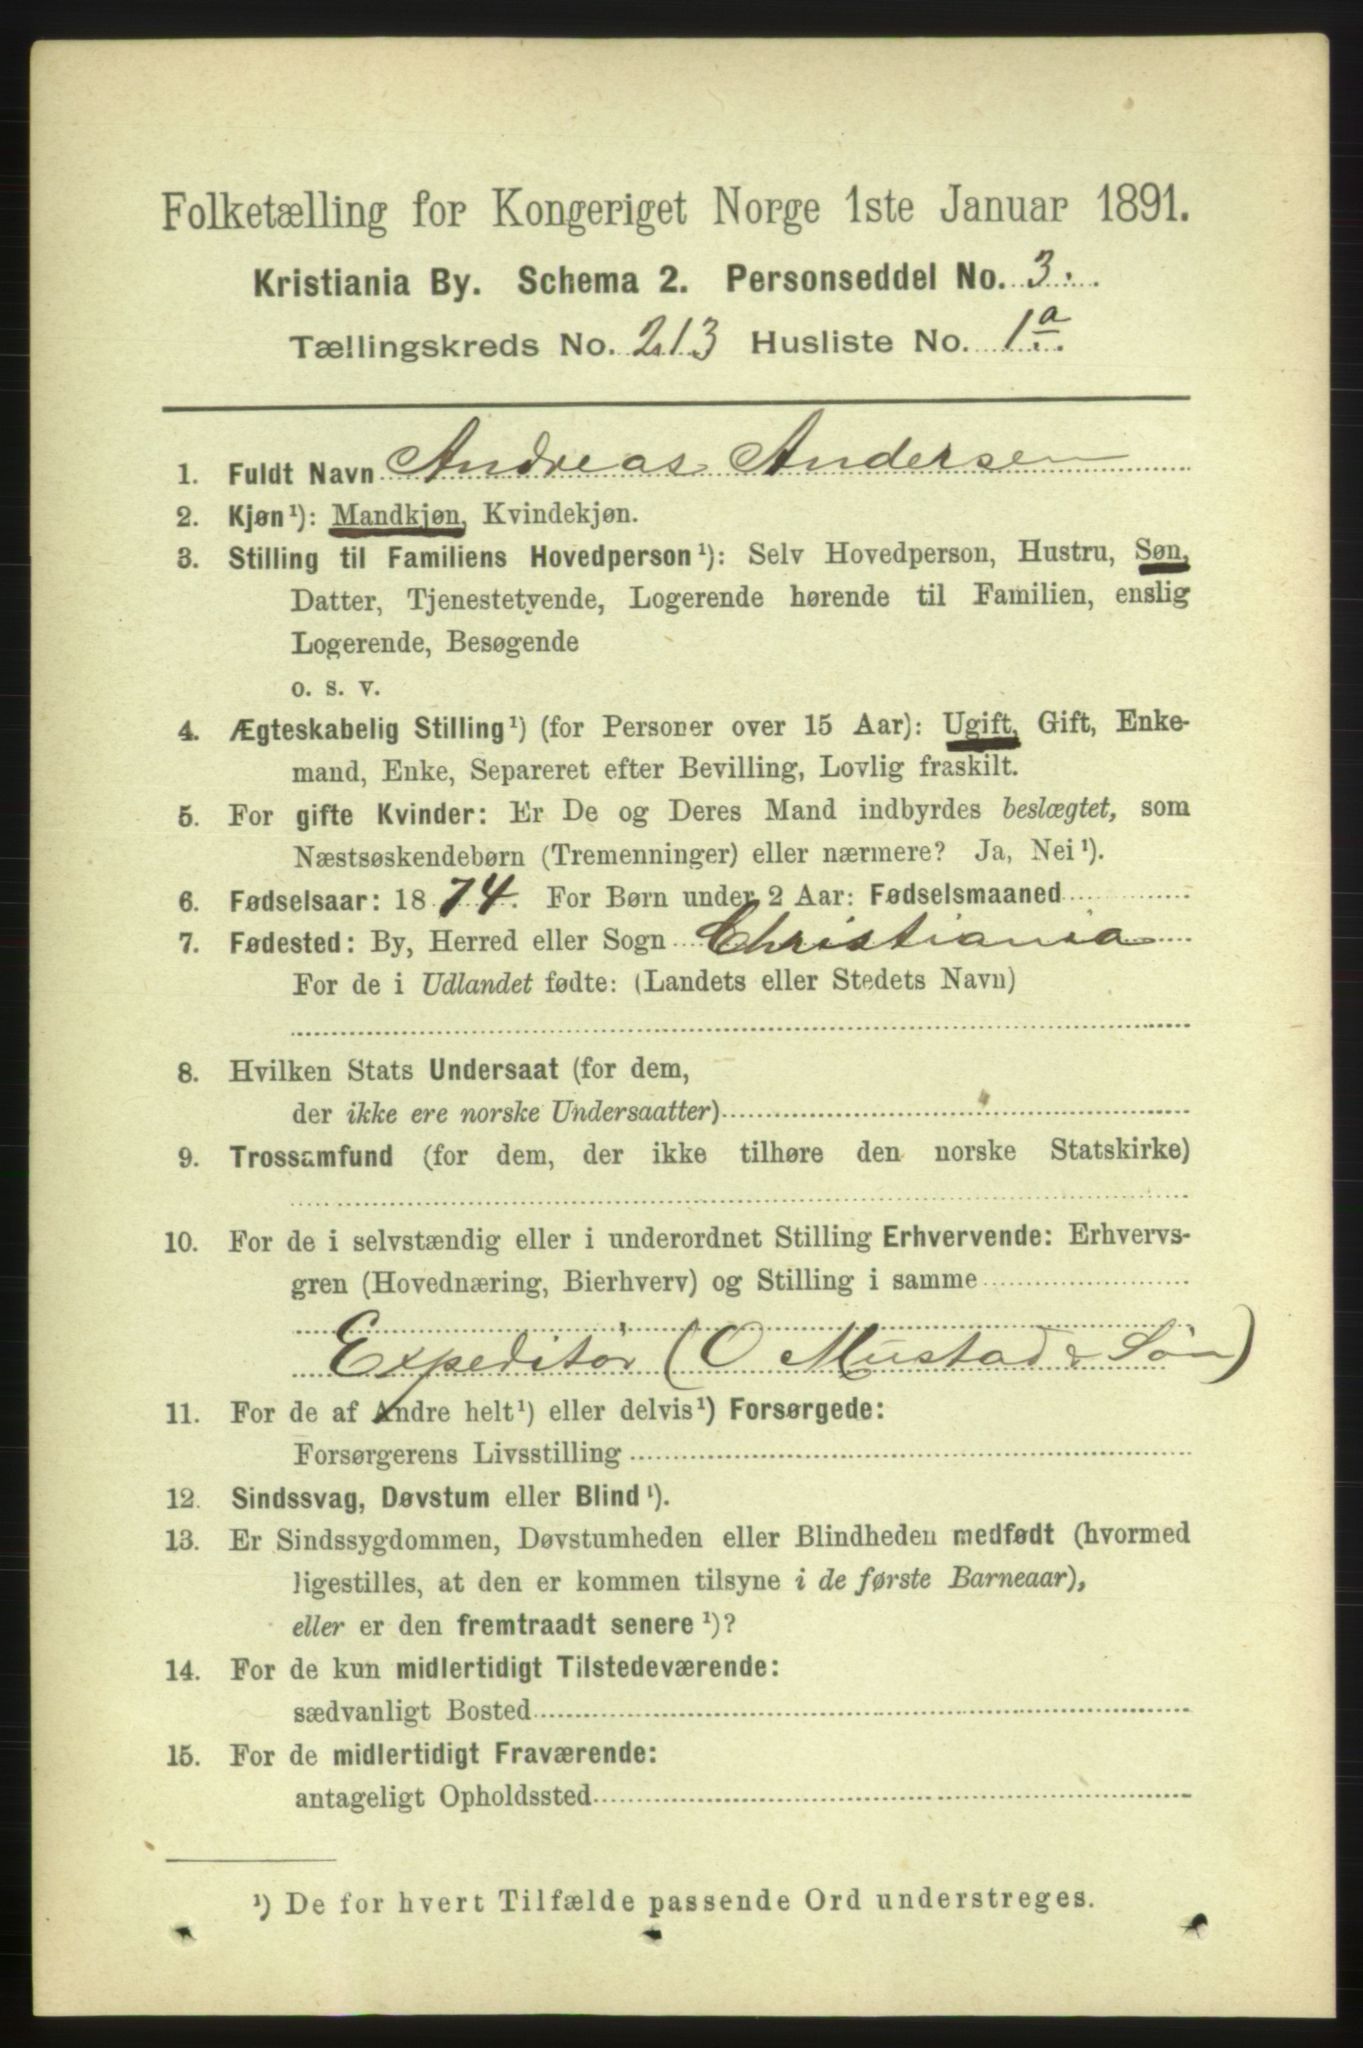 Folketælling for Kongeriget Norge 1ste Januar 1891.
Kristiania By. Schema 2. Personseddel No. 3.
Tællingskreds No. 213 Husliste No. 1a
1. Fuldt Navn Andreas Andersen
2. Kjøn¹): Mandkjøn, Kvindekjøn.
3. Stilling til Familiens Hovedperson¹): Selv Hovedperson, Hustru, Søn,
Datter, Tjenestetyende, Logerende hørende til Familien, enslig
Logerende, Besøgende
o. s. v.
4. Ægteskabelig Stilling¹) (for Personer over 15 Aar): Ugift, Gift, Enke-
mand, Enke, Separeret efter Bevilling, Lovlig fraskilt.
5. For gifte Kvinder: Er De og Deres Mand indbyrdes beslægtet, som
Næstsøskendebørn (Tremenninger) eller nærmere? Ja, Nei¹).
6. Fødselsaar: 1874. For Børn under 2 Aar: Fødselsmaaned
7. Fødested: By, Herred eller Sogn Christiania
For de i Udlandet fødte: (Landets eller Stedets Navn)
8. Hvilken Stats Undersaat (for dem,
der ikke ere norske Undersaatter)
9. Trossamfund (for dem, der ikke tilhøre den norske Statskirke)
10. For de i selvstændig eller i underordnet Stilling Erhvervende: Erhvervs-
gren (Hovednæring, Bierhverv) og Stilling i samme
Expeditør (O Mustad & Søn)
11. For de af Andre helt¹) eller delvis¹) Forsørgede:
Forsørgerens Livsstilling
12. Sindssvag, Døvstum eller Blind¹).
13. Er Sindssygdommen, Døvstumheden eller Blindheden medfødt (hvormed
ligestilles, at den er kommen tilsyne i de første Barneaar),
eller er den fremtraadt senere¹)?
14. For de kun midlertidigt Tilstedeværende:
sædvanligt Bosted
15. For de midlertidigt Fraværende:
antageligt Opholdssted
¹) De for hvert Tilfælde passende Ord understreges.